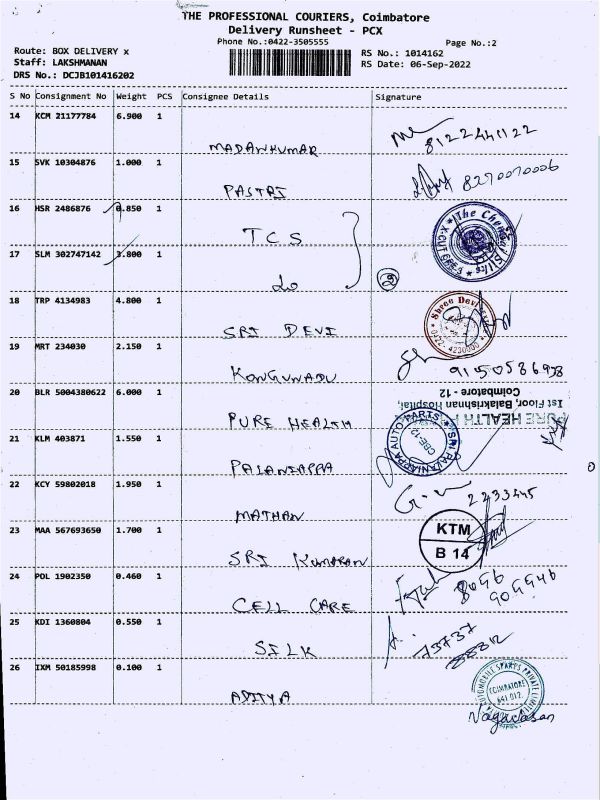 THE PROFESSIONAL COURIERS, Coimbatore
Delivery Runsheet - PCX
Phone No.:0422-3505555
Page No.:2
Route: BOX DELIVERY x
Staff: LAKSHMANAN
DRS No.: DCJB101416202
RS No.: 1014162
RS Date: 06-Sep-2022
S No Consignment No Weight PCS Consignee Details Signature
14 KCM 21177784 6.900 1
MADANKUMAR 8122441122
15 SVK 10304876 1.000 1
PASTRI
16 HSR 2486876 0.850 1
TCS
17 SLM 302747142 3.800 1
do 2
18 TRP 4134983 4.800 1
SRI DEVI
19 MRT 234030 2.150 1
KONGUNADU 9150586958
20 BLR 5004380622 6.000 1
PURE HEALTH
PURE HEALTH
1st Floor, Balakrishnan Hospital,
Coimbatore - 12
21 KLM 403871 1.550 1
PALANIAPPA
SRI PALANIAPPA AUTO PARTS
CBE-12
22 KCY 59802018 1.950 1
MATHAN 2233445
23 MAA 567693650 1.700 1
SRI KUMARAN
KTM
B 14
24 POL 1902350 0.460 1
CELL CARE
25 KDI 1360804 0.550 1
SILK 73737
26 IXM 50185998 0.100 1
ADITYA
AUTOMOBILE SPARES PRIVATE LIMITED
COIMBATORE
641 012.
Nagadasan